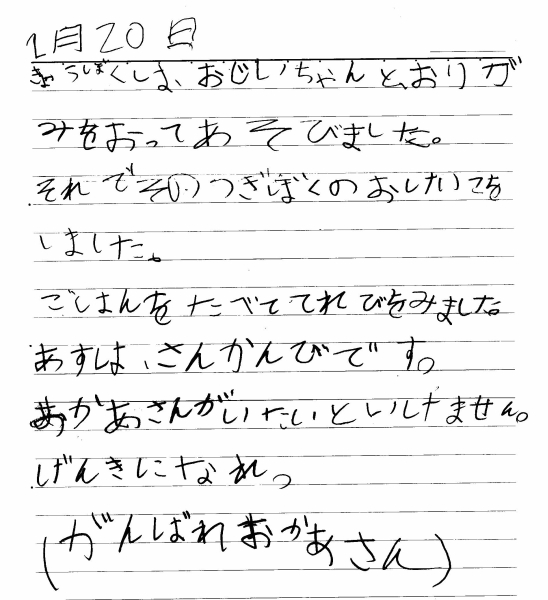 1月20日
きょうぼくしは、おじいちゃんと、おりが
みをおってあそびました。
それでそのつぎぼくのおしたいてを
しました。
ごはんをたべててれびをみました。
あすしは、さんかんびです。
おかあさんがいたいといけません。
げんきになれっ
(がんばれおかあさん)